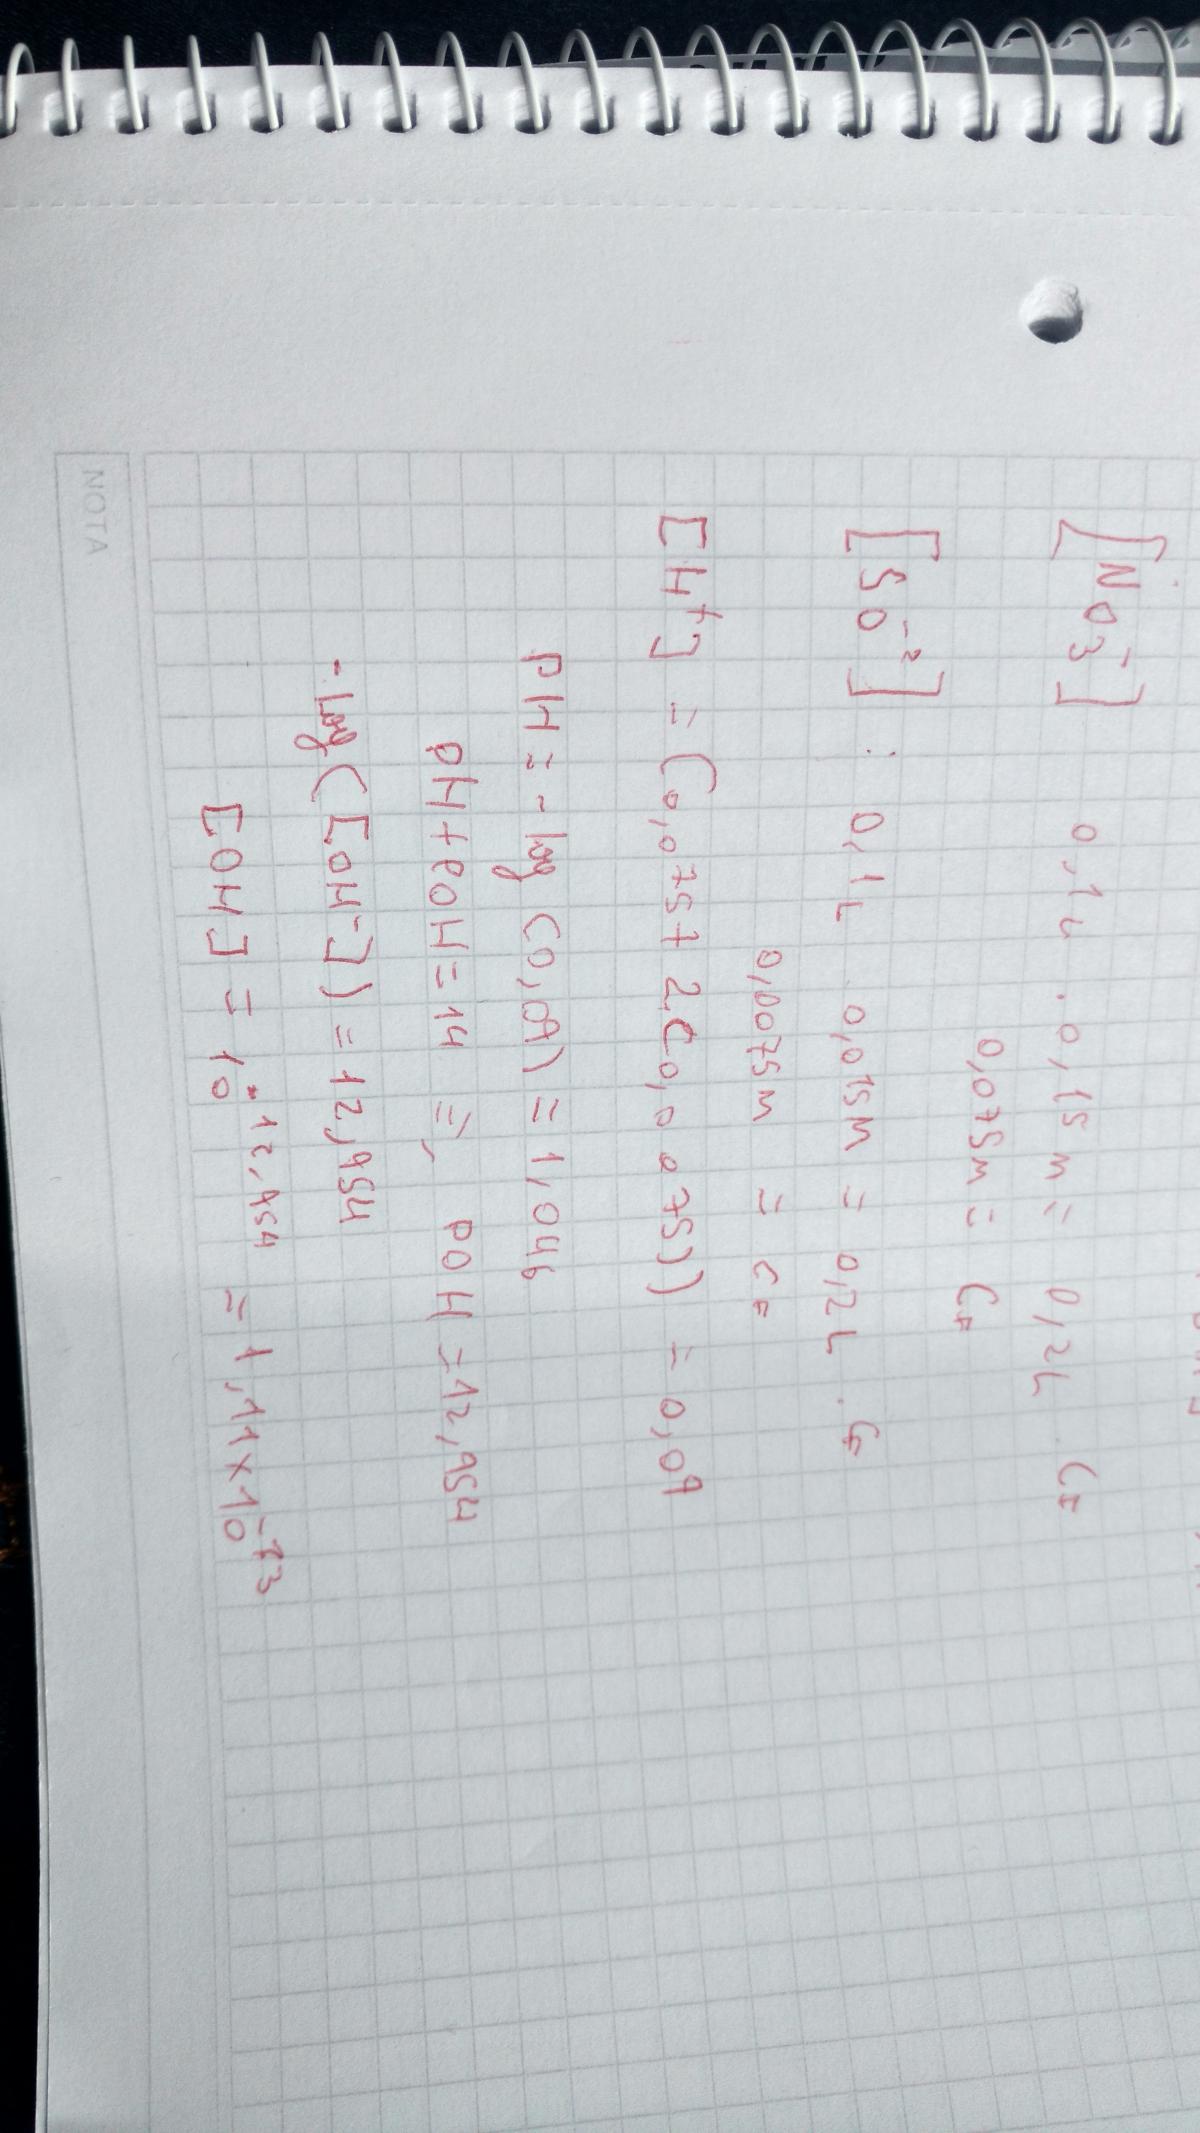 [NO3⁻] 0,1L . 0,15M = 0,2L . CF
0,075M = CF
[SO⁻²] : 0,1L 0,015M = 0,2L . CF
0,0075M = CF
[H⁺] = (0,075+2(0,0075)) = 0,09
pH = -log (0,09) = 1,046
pH+pOH=14 => pOH = 12,954
-log([OH⁻]) = 12,954
[OH] = 10⁻¹²,⁹⁵⁴ = 1,11x10⁻¹³
NOTA